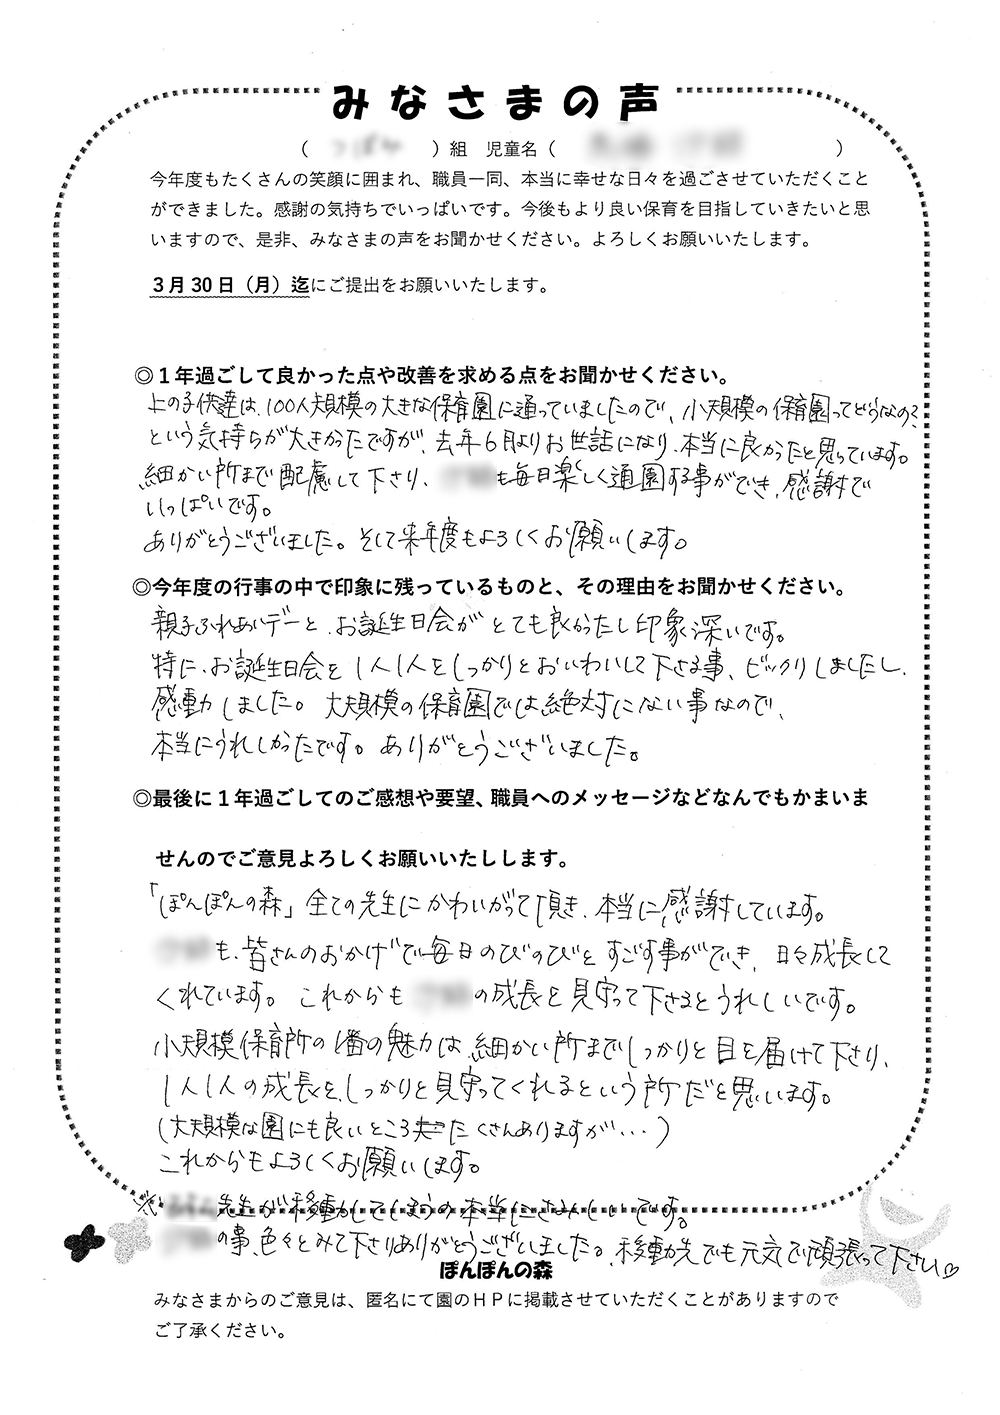 みなさまの声
（　　　）組　児童名（　　　　　　　　）
今年度もたくさんの笑顔に囲まれ、職員一同、本当に幸せな日々を過ごさせていただくこと
ができました。感謝の気持ちでいっぱいです。今後もより良い保育を目指していきたいと思
いますので、是非、みなさまの声をお聞かせください。よろしくお願いいたします。
３月30日（月）迄にご提出をお願いいたします。
◎１年過ごして良かった点や改善を求める点をお聞かせください。
上の子供達は、100人規模の大きな保育園に通っていましたので、小規模の保育園ってどうなの?
という気持ちが大きかったですが、去年6月よりお世話になり、本当に良かったと思っています。
細かい所まで配慮して下さり、も毎日楽しく通園する事ができ、感謝で
いっぱいです。
ありがとうございました。そして来年度もよろしくお願いします。
◎今年度の行事の中で印象に残っているものと、その理由をお聞かせください。
親子ふれあいデーと、お誕生日会がとても良かったし印象深いです。
特に、お誕生日会を1人1人をしっかりとおいわいして下さる事、ビックリしましたし、
感動しました。大規模の保育園では絶対にない事なので、
本当にうれしかったです。ありがとうございました。
◎最後に１年過ごしてのご感想や要望、職員へのメッセージなどなんでもかまいま
せんのでご意見よろしくお願いいたしします。
「ぽんぽんの森」全ての先生にかわいがって頂き、本当に感謝しています。
も、皆さんのおかげで毎日のびのびとすごす事ができ、日々成長して
くれています。これからもの成長を見守って下さるとうれしいです。
小規模保育所の1番の魅力は、細かい所までしっかりと目を届けて下さり、
1人1人の成長を、しっかりと見守ってくれるという所だと思います。
(大規模な園にも良いところたくさんありますが…)
これからもよろしくお願いします。
※先生が移動してしまうの本当にさみしいです。
の事、色々とみて下さりありがとうございました。移動先でも元気で頑張って下さい♡
ぽんぽんの森
みなさまからのご意見は、匿名にて園のＨＰに掲載させていただくことがありますので
ご了承ください。